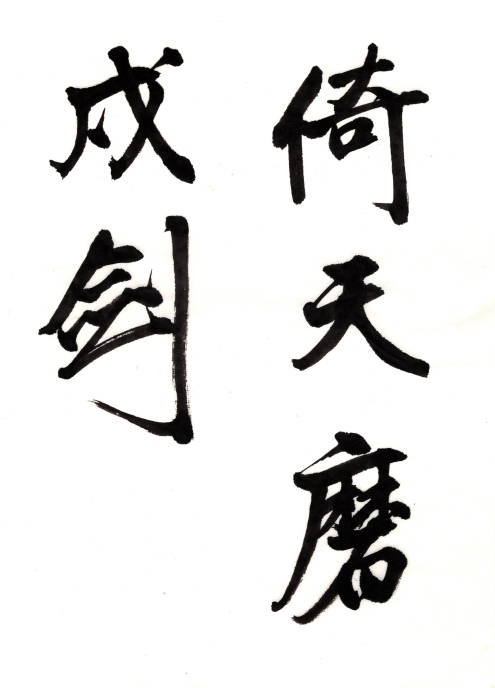 倚天磨
戍剑